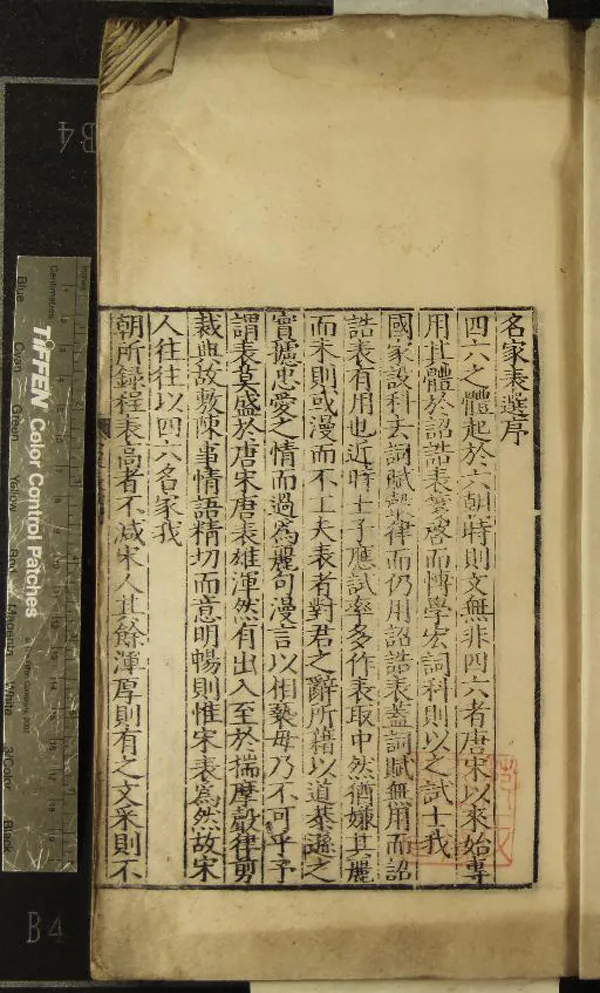 名家表選序
四六之體起於六朝時則文無非四六者唐宋以來始專
用其體於詔誥表箋啓而博學宏詞科則以之試士我
國家設科去詞賦聲律而仍用詔誥表蓋詞賦無用而詔
誥表有用也近時士子應試率多作表取中然猶嫌其麗
而未則或漫而不工夫表者對君之辭所藉以道恭遜之
實攄忠愛之情而過為麗句漫言以相褻毋乃不可乎予
謂表莫盛於唐宋唐表雄渾然有出入至於揣摩聲律剪
裁典故敷陳事情語精切而意明暢則惟宋表為然故宋
人往往以四六名家我
朝所錄程表高者不減宋人其餘渾厚則有之文采則不
TIFFEN Color Control Patches
Centimetres
Blue
Cyan
Green
Yellow
Red
Magenta
White
3/Color
Black
B4
B4